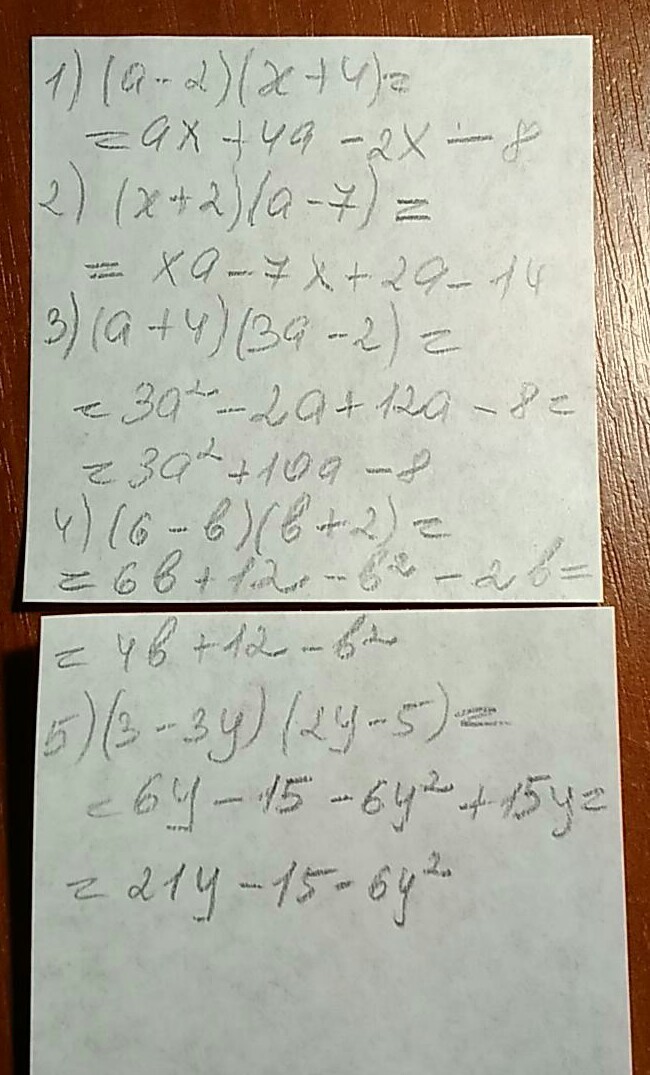 1) (a-2)(x+4)=
=ax+4a-2x-8
2) (x+2)(a-7)=
=xa-7x+2a-14
3) (a+4)(3a-2)=
=3a²-2a+12a-8=
=3a²+10a-8
4) (6-b)(b+2)=
=6b+12-b²-2b=
=4b+12-b²
5) (3-3y)(2y-5)=
=6y-15-6y²+15y=
=21y-15-6y²